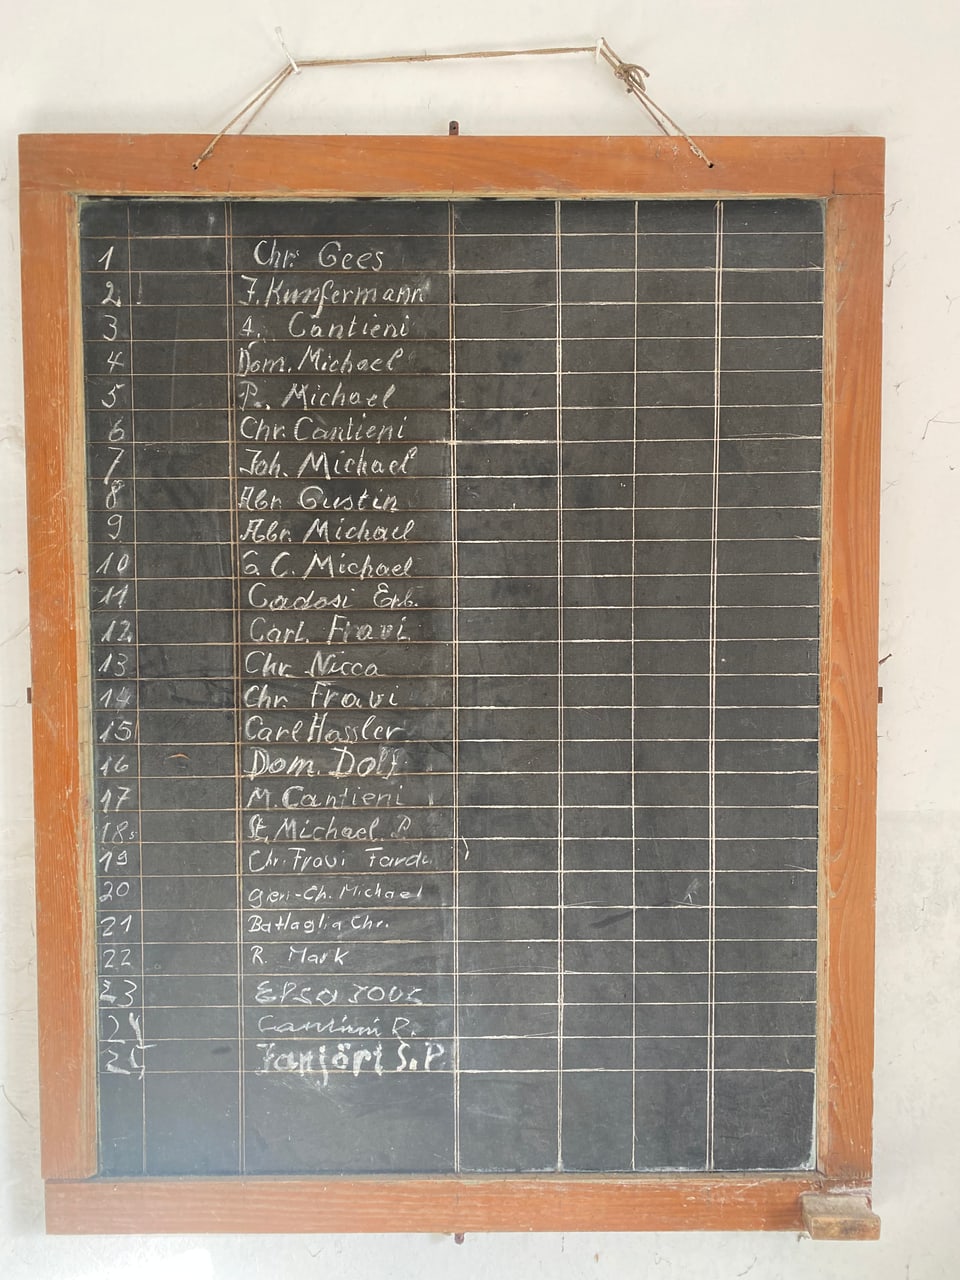 1 Chr. Gees
2 J. Kunfermann
3 A. Cantieni
4 Dom. Michael
5 P. Michael
6 Chr. Cantieni
7 Joh. Michael
8 Abr. Gustin
9 Abr. Michael
10 G. C. Michael
11 Cadosi Erb.
12 Carl. Fravi
13 Chr. Nicca
14 Chr. Fravi
15 Carl Hassler
16 Dom. Dolf
17 M. Cantieni
18 St. Michael P
19 Chr. Fravi
20 Geri-Ch. Michael
21 Battaglia Chr.
22 R. Mark
23
24 Cantieni R.
25 S.P.